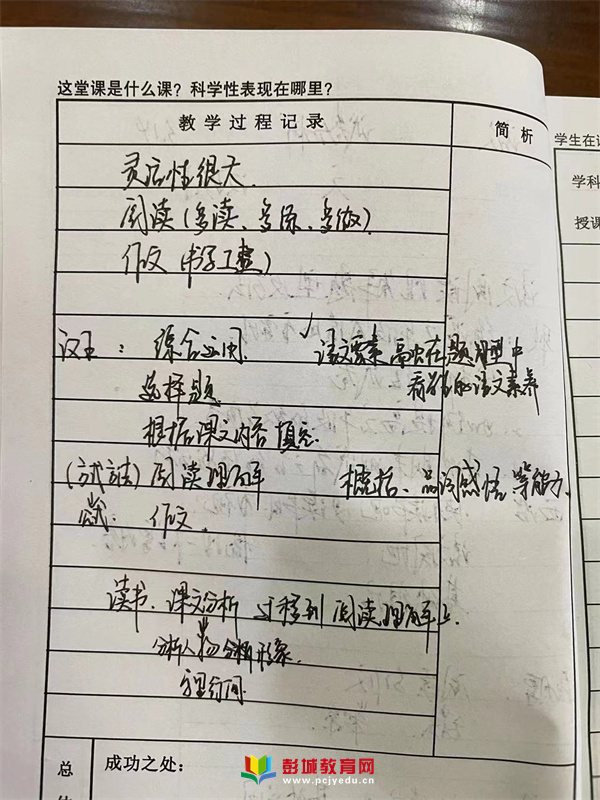 这堂课是什么课？科学性表现在哪里？
教学过程记录
简析
学生在
学科
授课
灵活性很大.
阅读(多读、多练、多做)
作文(书写工整)
汉王： 综合运用. ✓ 语文要素 高出在题型中
选择题 看学生的语文素养
根据课文内容填空.
(试读) 阅读理解 概括、品词感悟等能力.
作文.
读书. 课文分析 迁移到阅读理解上.
分析人物分析形象.
字里行间
总
成功之处：
彭城教育网
www.pcjyedu.cn